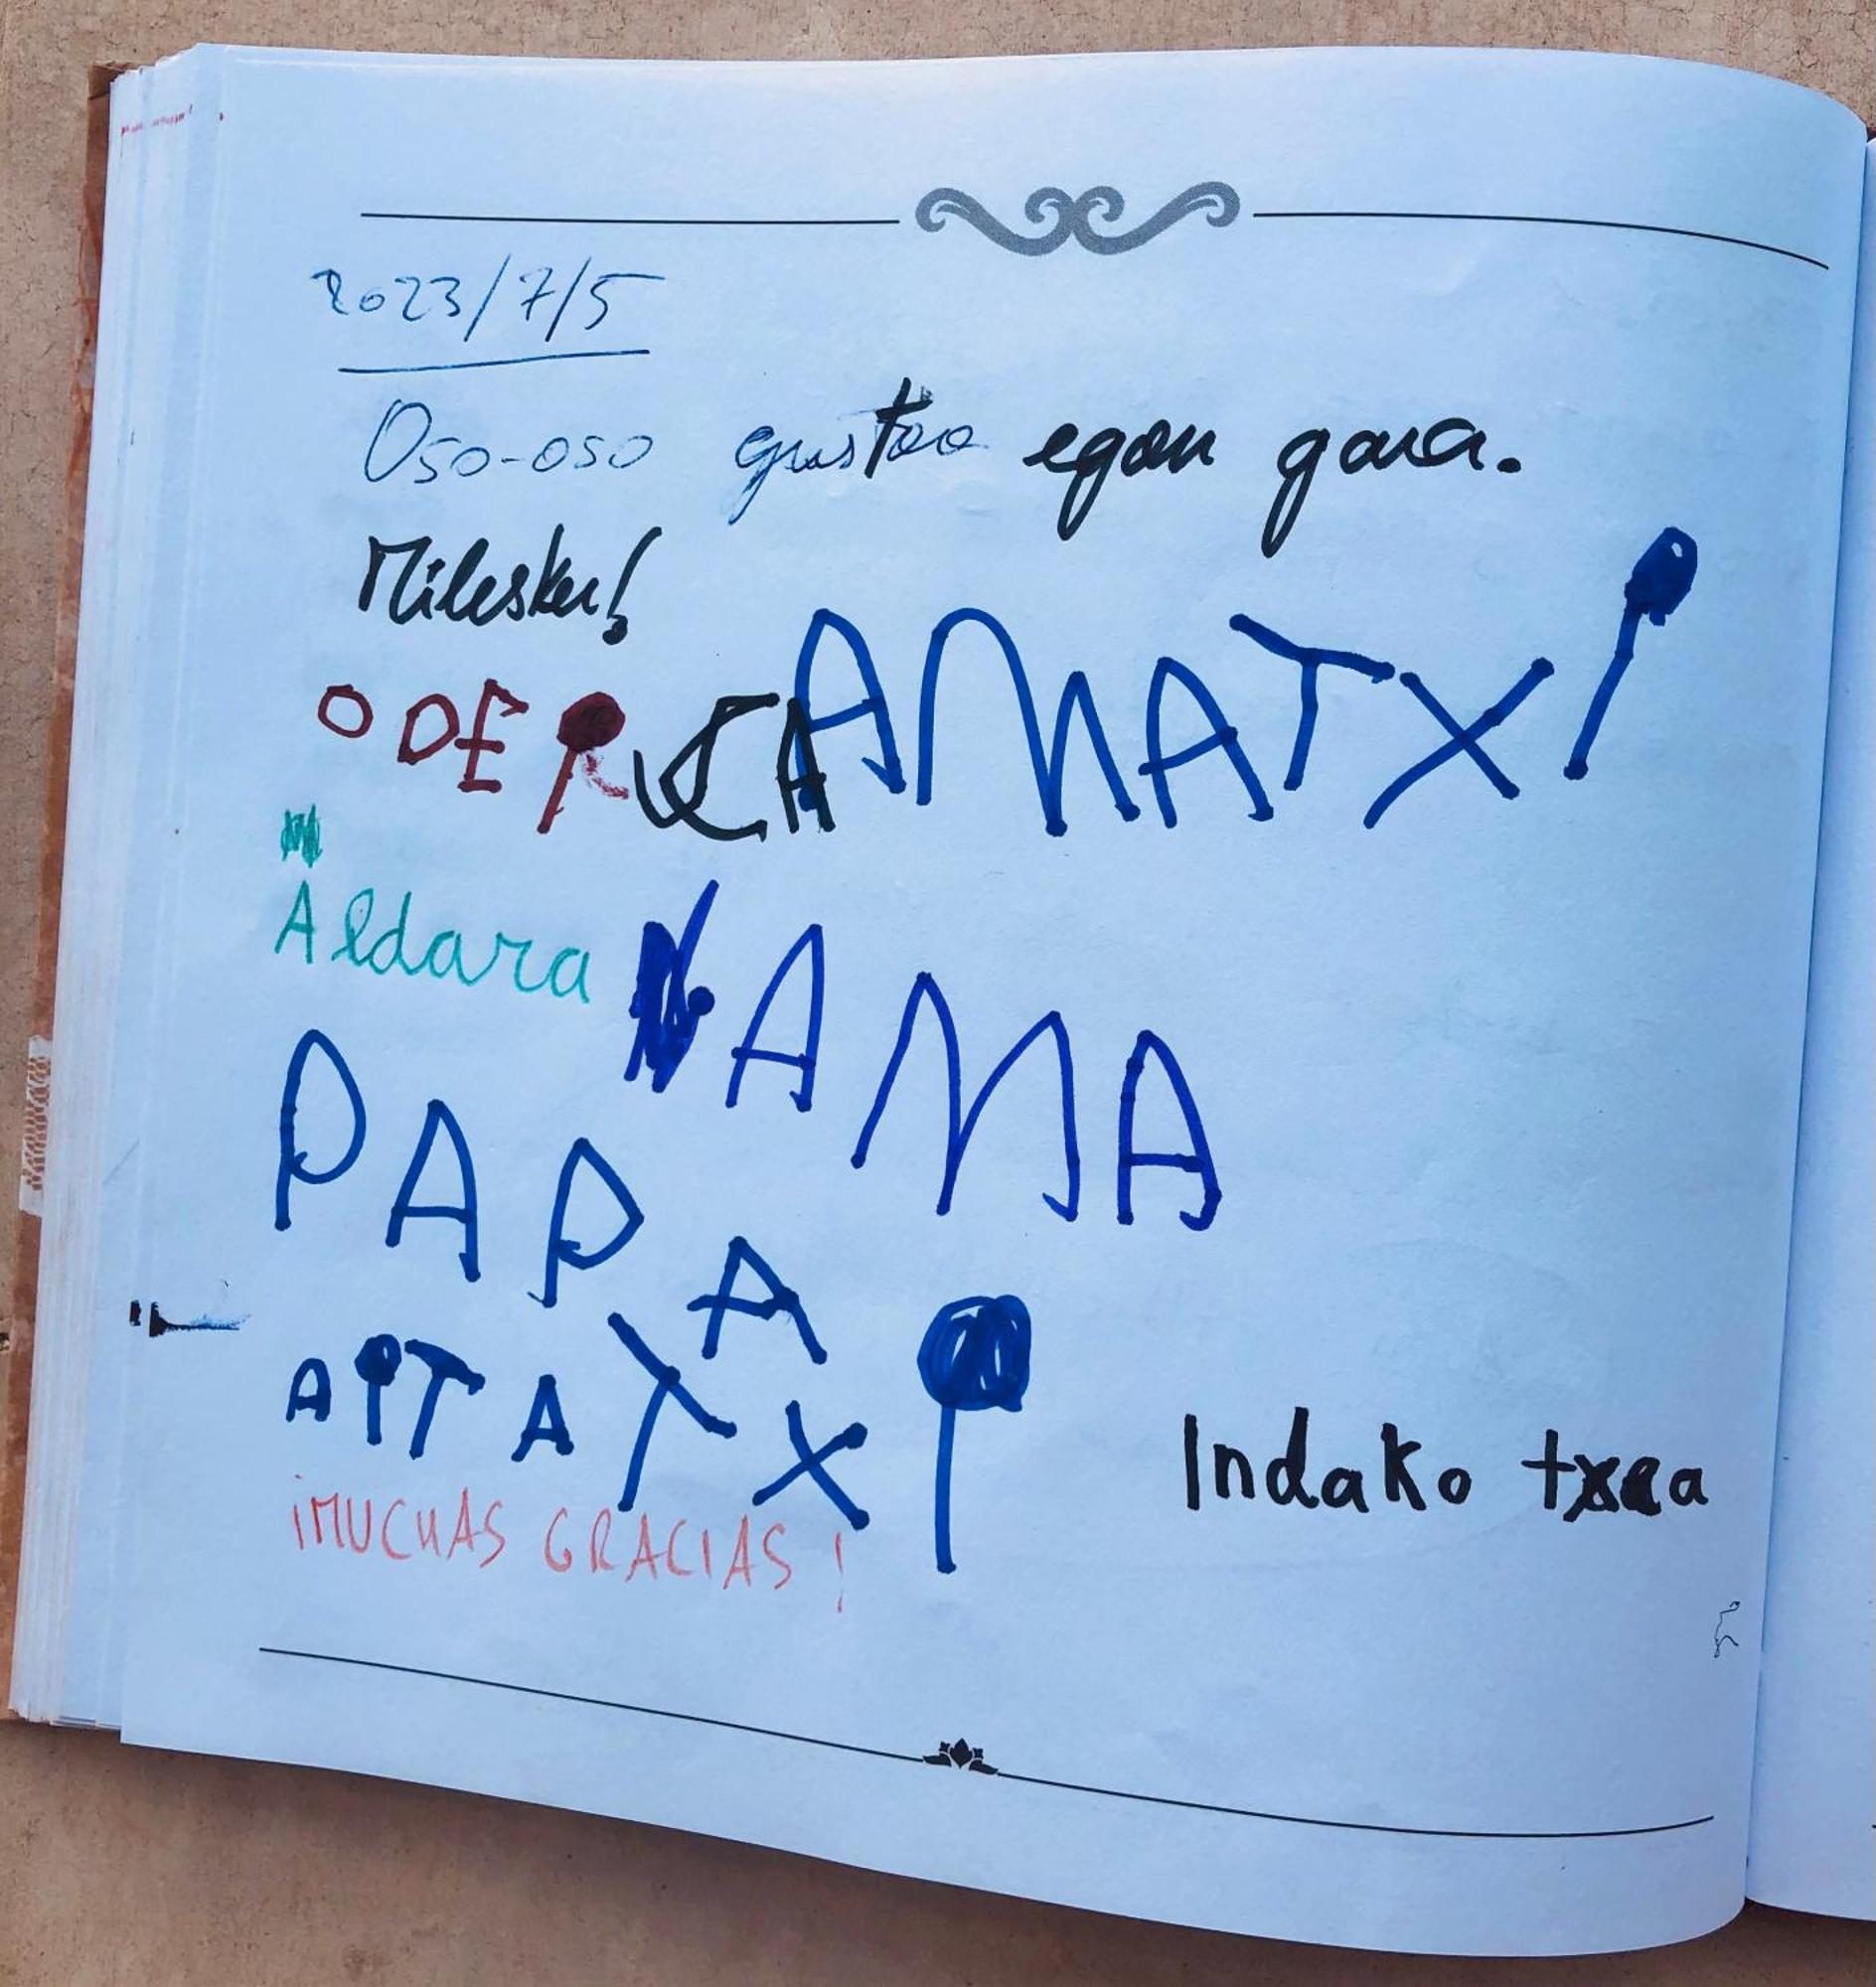 2023/7/5
Oso-oso gustoa egon gara.
Milesker!
ODEI AMATXI
Aldara AMA
PAPA
AITATXI
Indako txea
¡MUCHAS GRACIAS!